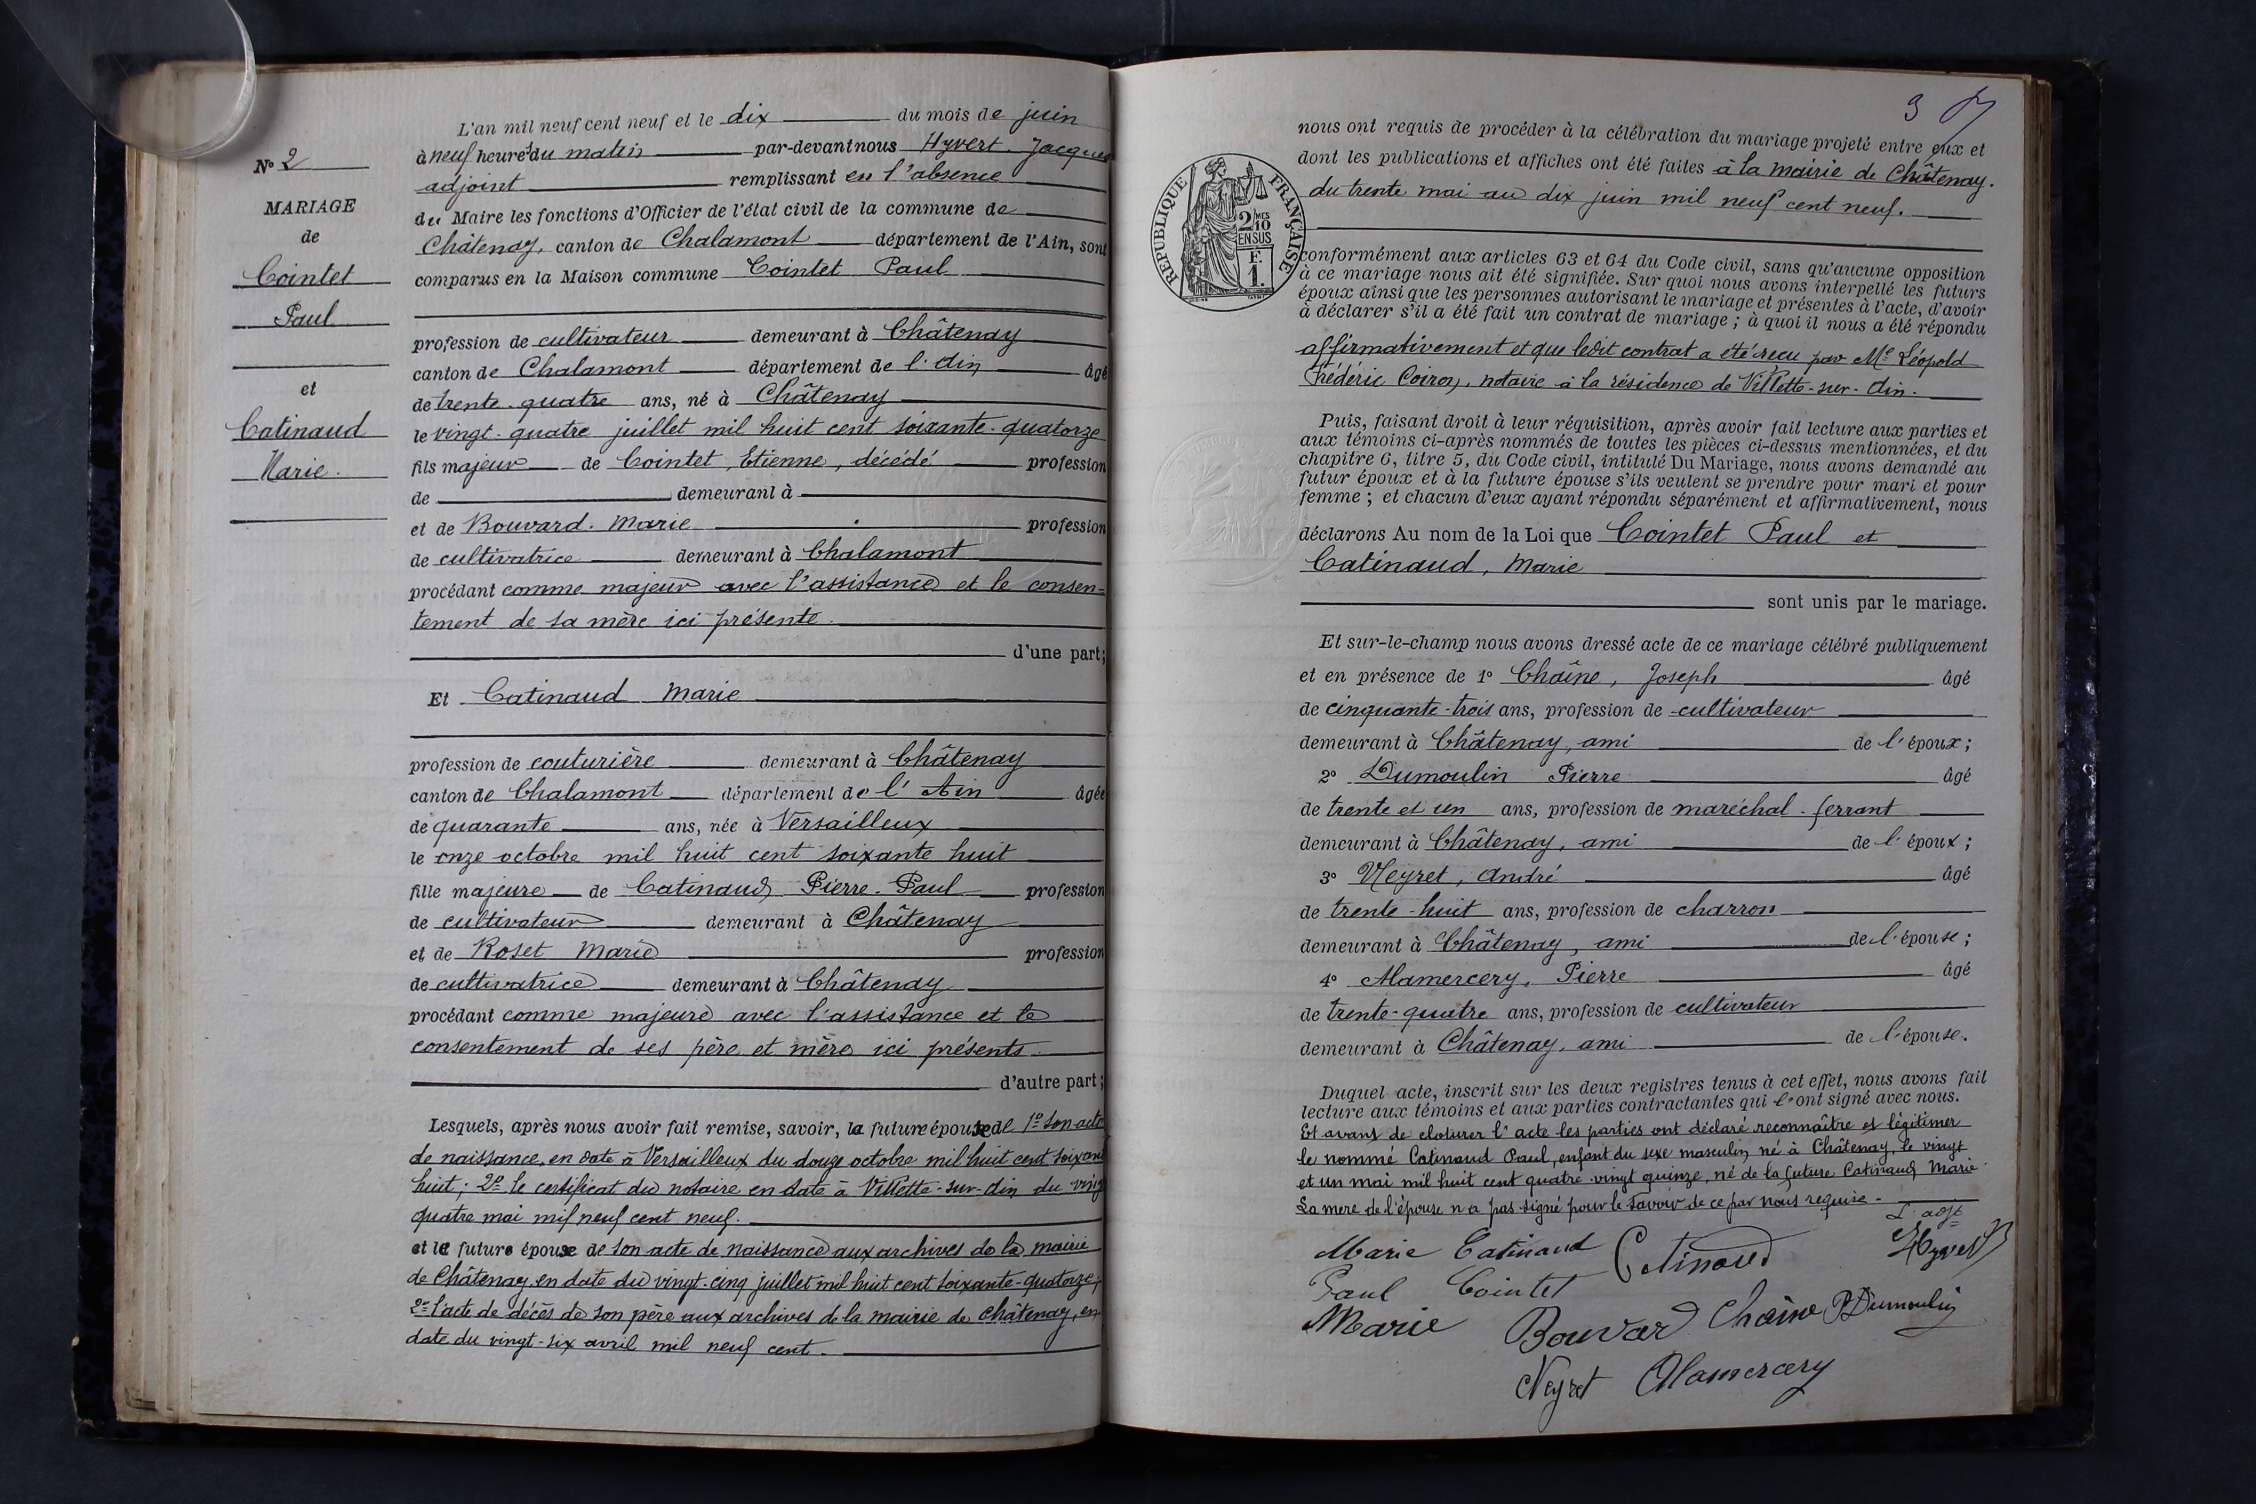 L'an mil neuf cent neuf et le dix du mois de juin
à neuf heures du matin par-devant nous Hyvert. Jacques
adjoint remplissant en l'absence
du Maire les fonctions d'Officier de l'état civil de la commune de
Châtenay, canton de Chalamont département de l'Ain, sont
comparus en la Maison commune Cointet Paul
profession de cultivateur demeurant à Châtenay
canton de Chalamont département de l'Ain âgé
de trente-quatre ans, né à Châtenay
le vingt-quatre juillet mil huit cent soixante-quatorze
fils majeur de Cointet, Etienne, décédé profession
de demeurant à
et de Bouvard. Marie profession
de cultivatrice demeurant à Chalamont
procédant comme majeur avec l'assistance et le consen=
tement de sa mère ici présente.
d'une part;
Et Catinaud Marie
profession de couturière demeurant à Châtenay
canton de Chalamont département de l'Ain âgée
de quarante ans, née à Versailleux
le onze octobre mil huit cent soixante huit
fille majeure de Catinaud Pierre-Paul profession
de cultivateur demeurant à Châtenay
et de Roset Marie profession
de cultivatrice demeurant à Châtenay
procédant comme majeure avec l'assistance et le
consentement de ses père et mère ici présents.
d'autre part;
Lesquels, après nous avoir fait remise, savoir, la future épouse de 1º son acte
de naissance, en date à Versailleux du douze octobre mil huit cent soixante
huit; 2º le certificat du notaire en date à Villette-sur-Ain du vingt
quatre mai mil neuf cent neuf.
et le future épouse de son acte de naissance aux archives de la mairie
de Châtenay en date du vingt-cinq juillet mil huit cent soixante-quatorze;
2º l'acte de décès de son père aux archives de la mairie de Châtenay, en
date du vingt-six avril mil neuf cent.
Nº 2
MARIAGE
de
Cointet
Paul
et
Catinaud
Marie.
3
nous ont requis de procéder à la célébration du mariage projeté entre eux et
dont les publications et affiches ont été faites à la mairie de Châtenay.
du trente mai au dix juin mil neuf cent neuf.
RÉPUBLIQUE FRANÇAISE
2/10 MES
EN SUS
F.
1.
conformément aux articles 63 et 64 du Code civil, sans qu'aucune opposition
à ce mariage nous ait été signifiée. Sur quoi nous avons interpellé les futurs
époux ainsi que les personnes autorisant le mariage et présentes à l'acte, d'avoir
à déclarer s'il a été fait un contrat de mariage; à quoi il nous a été répondu
affirmativement et que ledit contrat a été reçu par Me Léopold
Frédéric Coiron, notaire à la résidence de Villette-sur-Ain.
Puis, faisant droit à leur réquisition, après avoir fait lecture aux parties et
aux témoins ci-après nommés de toutes les pièces ci-dessus mentionnées, et du
chapitre 6, titre 5, du Code civil, intitulé Du Mariage, nous avons demandé au
futur époux et à la future épouse s'ils veulent se prendre pour mari et pour
femme; et chacun d'eux ayant répondu séparément et affirmativement, nous
déclarons Au nom de la Loi que Cointet Paul et
Catinaud, Marie
sont unis par le mariage.
Et sur-le-champ nous avons dressé acte de ce mariage célébré publiquement
et en présence de 1º Chaîne, Joseph âgé
de cinquante-trois ans, profession de cultivateur
demeurant à Châtenay, ami de l'époux;
2º Dumoulin Pierre âgé
de trente et un ans, profession de maréchal-ferrant
demeurant à Châtenay, ami de l'époux;
3º Neyret, André âgé
de trente-huit ans, profession de charron
demeurant à Châtenay, ami de l'épouse;
4º Mamercery, Pierre âgé
de trente-quatre ans, profession de cultivateur
demeurant à Châtenay, ami de l'épouse.
Duquel acte, inscrit sur les deux registres tenus à cet effet, nous avons fait
lecture aux témoins et aux parties contractantes qui l'ont signé avec nous.
Et avant de cloturer l'acte les parties ont déclaré reconnaître et légitimer
le nommé Catinaud Paul, enfant du sexe masculin, né à Châtenay, le vingt
et un mai mil huit cent quatre-vingt quinze, né de la future Catinaud Marie.
La mere de l'épouse n'a pas signé pour le savoir de ce par nous requise.
L'adjt
Marie Catinaud Catinaud Hyvert
Paul Cointet
Marie Bouvard Chaîne P Dumoulin
Neyret Mamercery